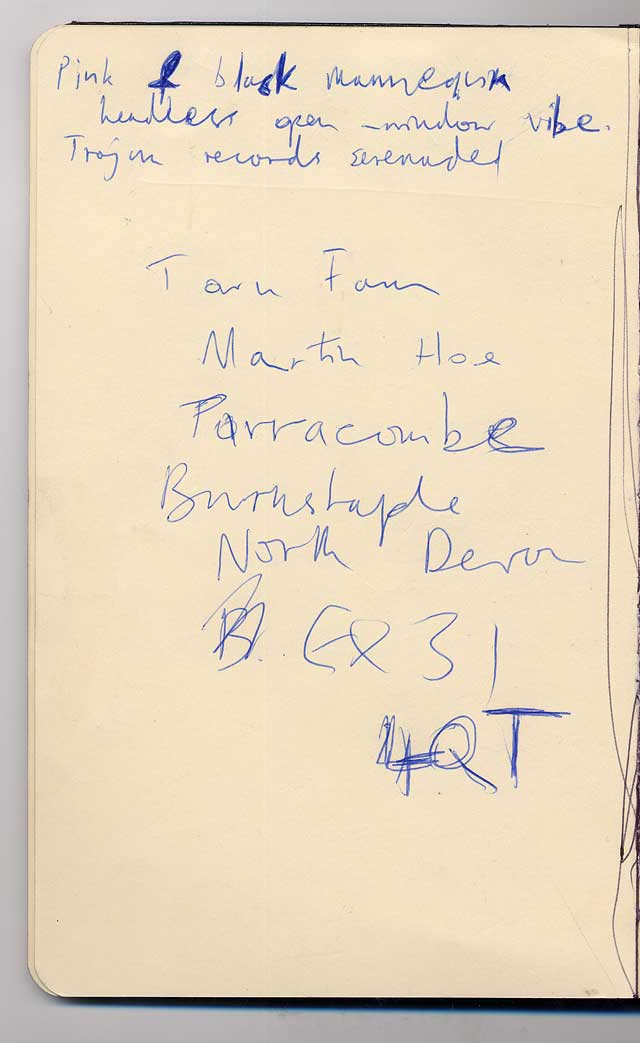 Pink & black mannequin
headless open-window vibe.
Trojan records serenaded
Tarn Farm
Martin Hoe
Parracombe
Burnstaple
North Devon
EX31
4QT